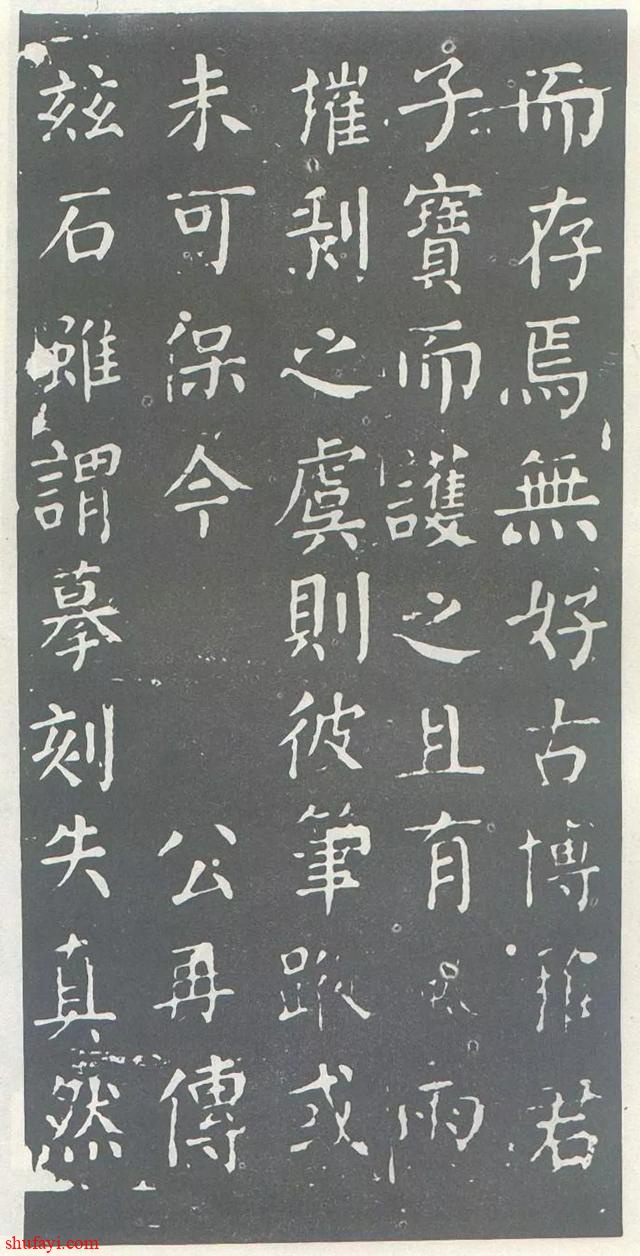 而存焉無好古博雅君
子寶而護之且有雨
摧剥之虞則彼筆蹤或
未可保今　公再傳
兹石雖謂摹刻失真然
shufayi.com